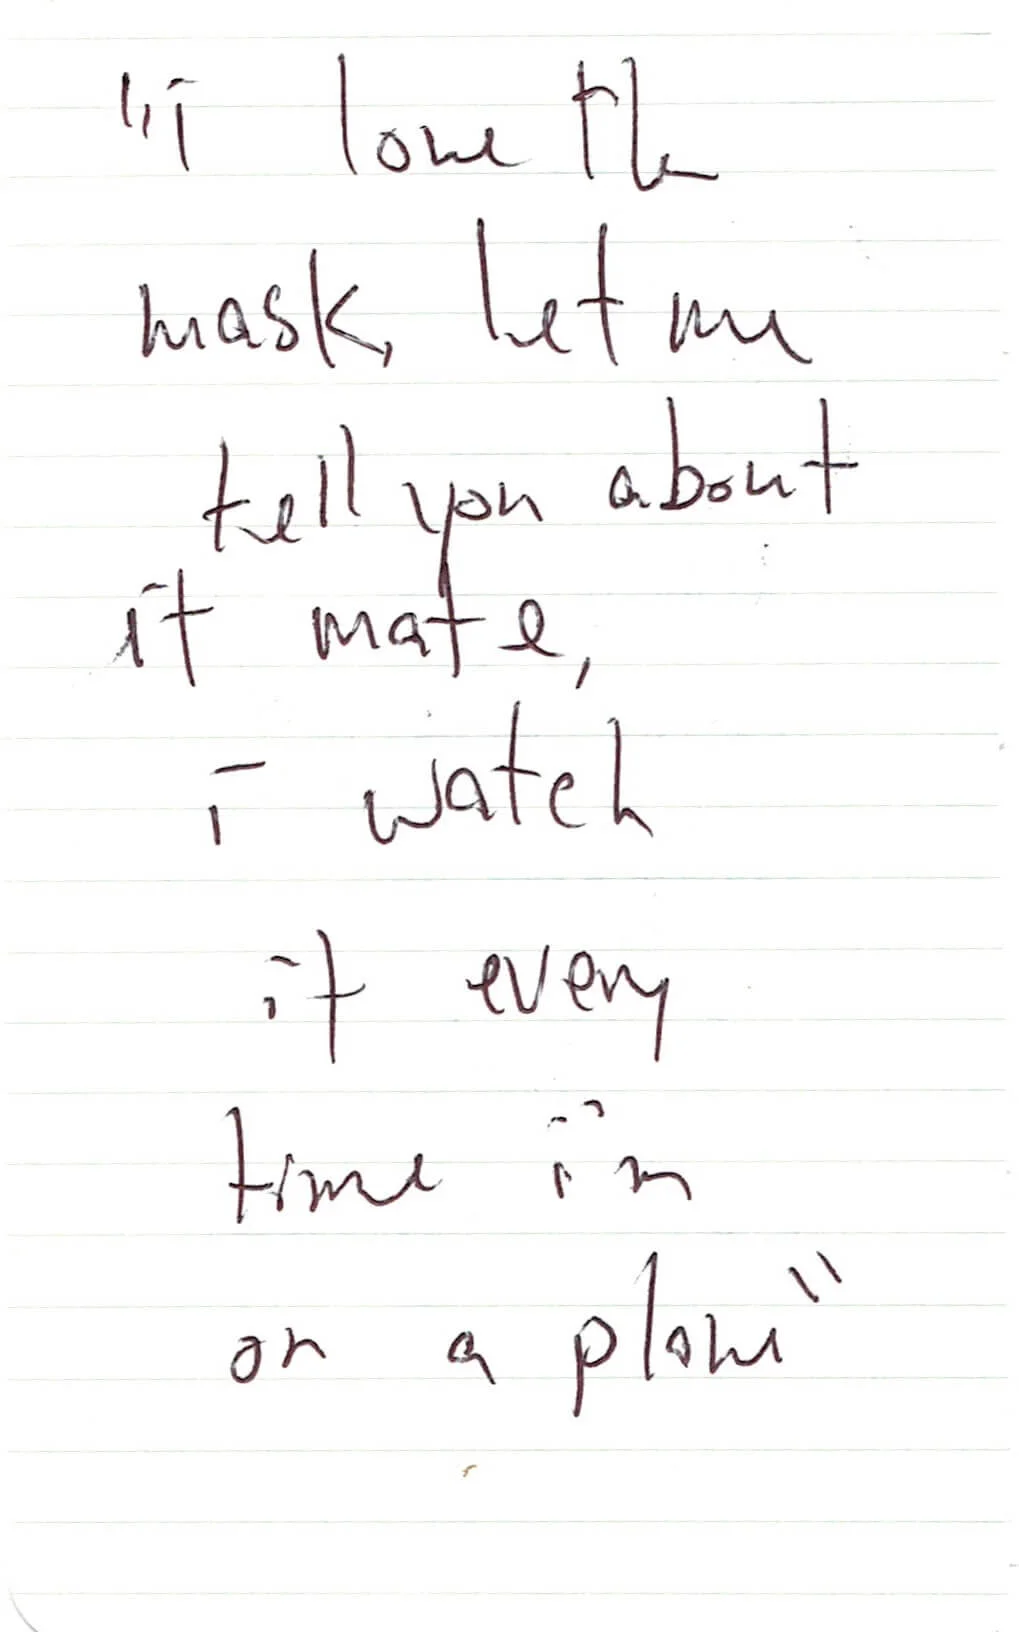 "i love the
mask, let me
tell you about
it mate,
i watch
it every
time i'm
on a plane"